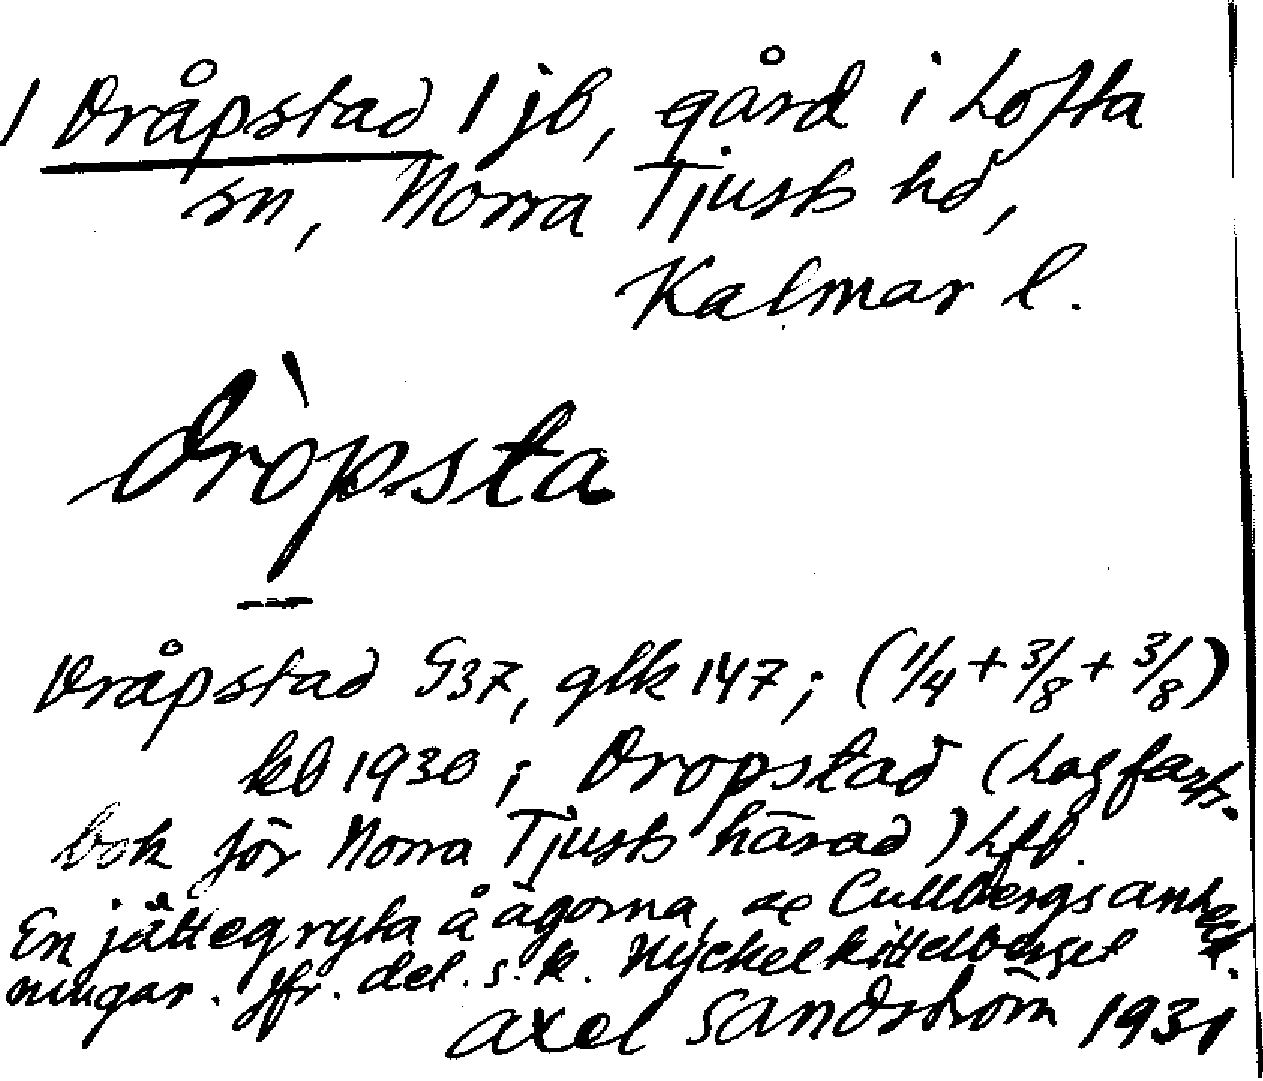 1 Dråpstad 1 jb, gård i Lofta
sn, Norra Tjusts hd,
Kalmar l.
dròpsta
Dråpstad G37, glk 147; (1/4 + 3/8 + 3/8)
kb 1930; Dropstad (Lagfarts-
bok för Norra Tjusts härad) Lfb.
En jättegryta å ägorna, se Cullbergs anteck-
ningar. Jfr. det s. k. Nyckelkittelberget
Axel Sandström 1931